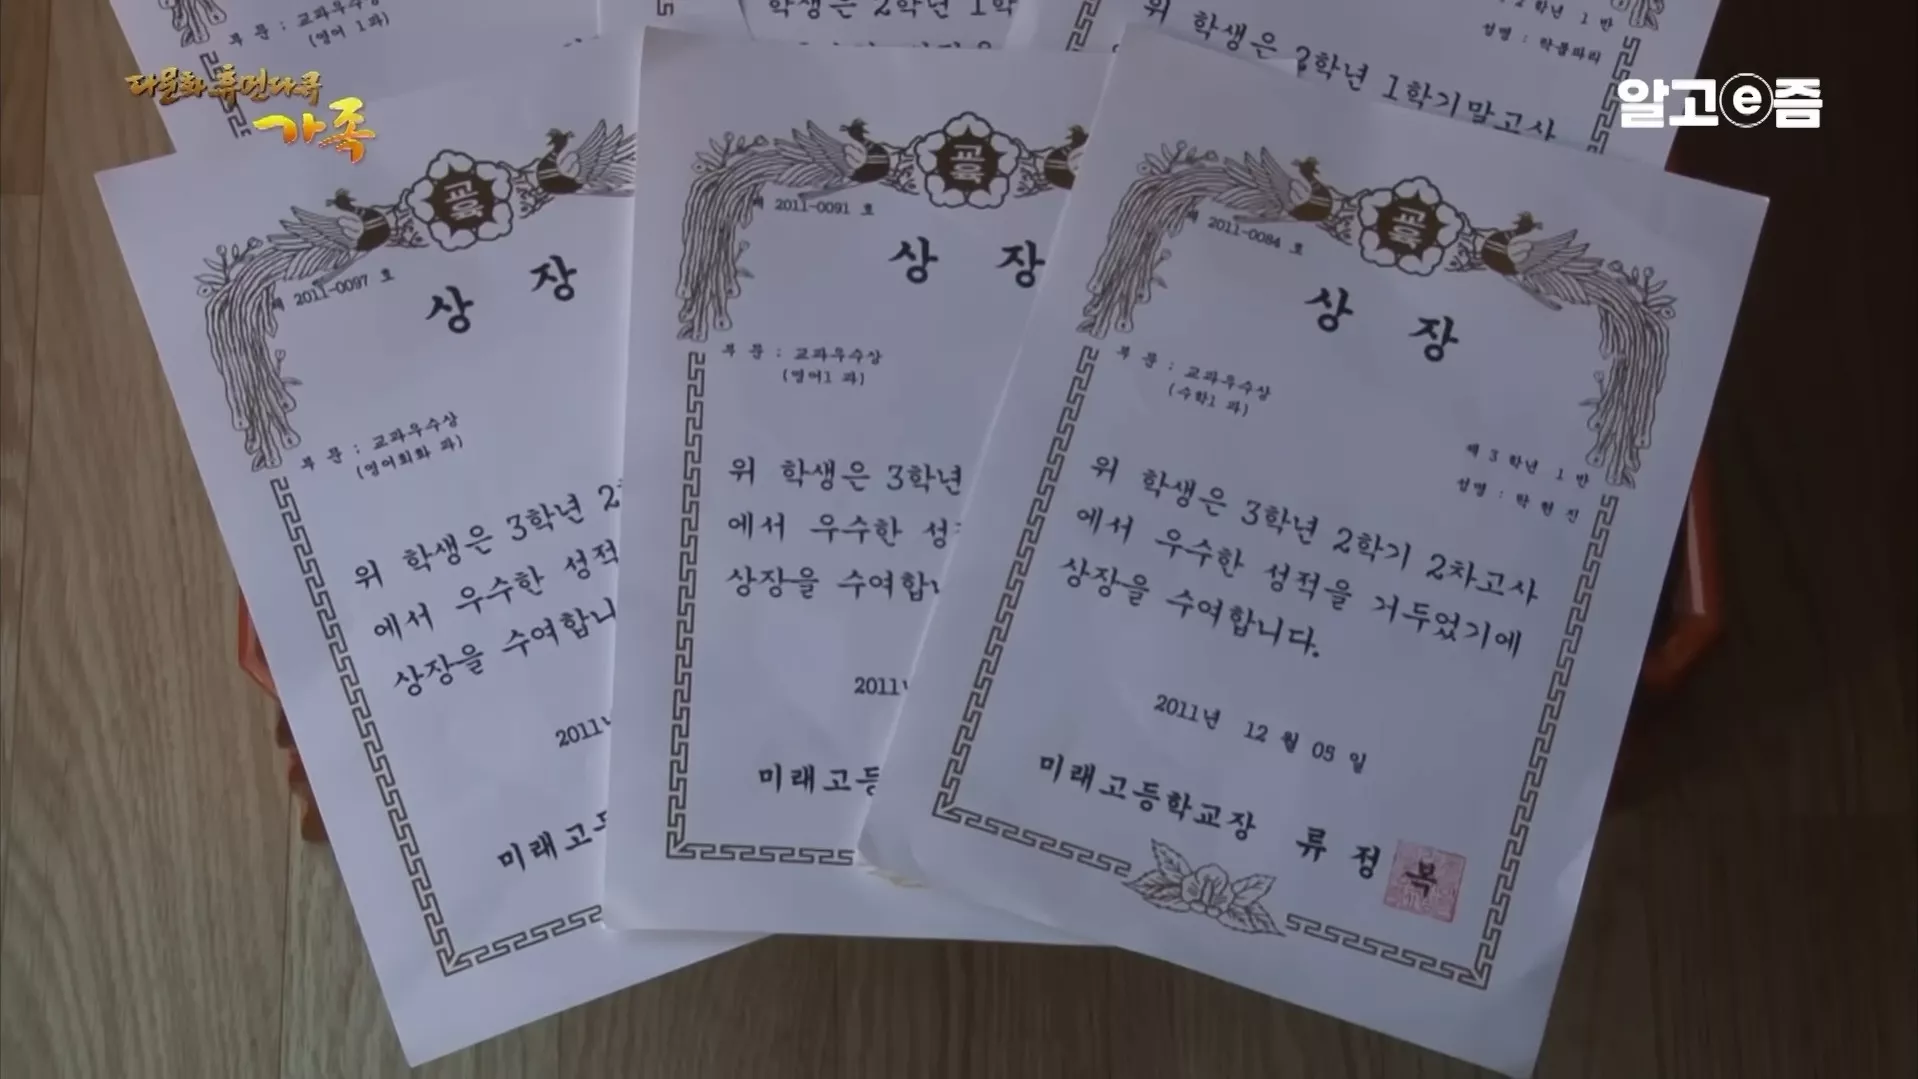 다문화 휴먼다큐
가족
알고e즘
부 문 : 교과우수상
(영어 1과)
학생은 2학년 1학
위 학생은 2학년 1학기말고사
제 2 학년 1 반
성명 :
교육
제 2011-0097 호
상 장
부 문 : 교과우수상
(영어회화 과)
위 학생은 3학년 2
에서 우수한 성적
상장을 수여합니
2011년
미래고등
교육
제 2011-0091 호
상 장
부 문 : 교과우수상
(영어1 과)
위 학생은 3학년
에서 우수한 성
상장을 수여합니
2011
미래고등
교육
제 2011-0084 호
상 장
부 문 : 교과우수상
(수학1 과)
제 3 학년 1 반
성명 : 박 현 진
위 학생은 3학년 2학기 2차고사
에서 우수한 성적을 거두었기에
상장을 수여합니다.
2011년 12 월 05 일
미래고등학교장 류 정 복